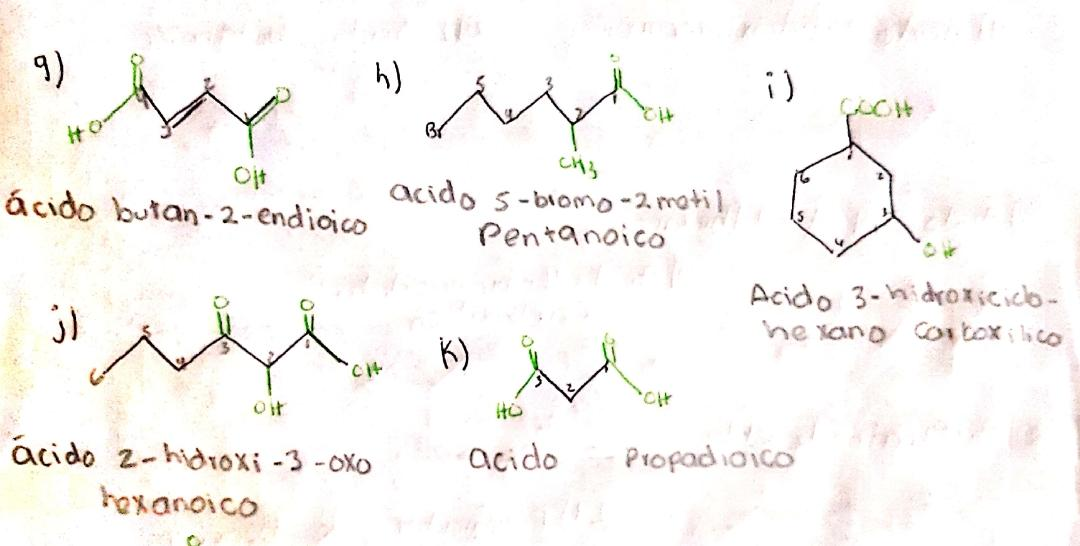 g)
O
4
2
O
HO
3
1
OH
ácido butan-2-endioico
h)
5
3
O
1
Br
4
2
OH
CH3
acido 5-bromo-2metil
Pentanoico
i)
COOH
1
6
2
5
3
4
OH
Acido 3-hidroxiciclo-
hexano carboxilico
j)
O
O
5
3
1
6
4
2
OH
OH
ácido 2-hidroxi-3-oxo
hexanoico
k)
O
O
3
2
1
HO
OH
acido Propadioico